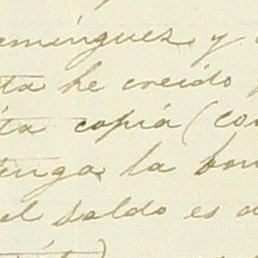 eminguez y
ta he creido
ta copia (con
enga la bon
el Saldo es d